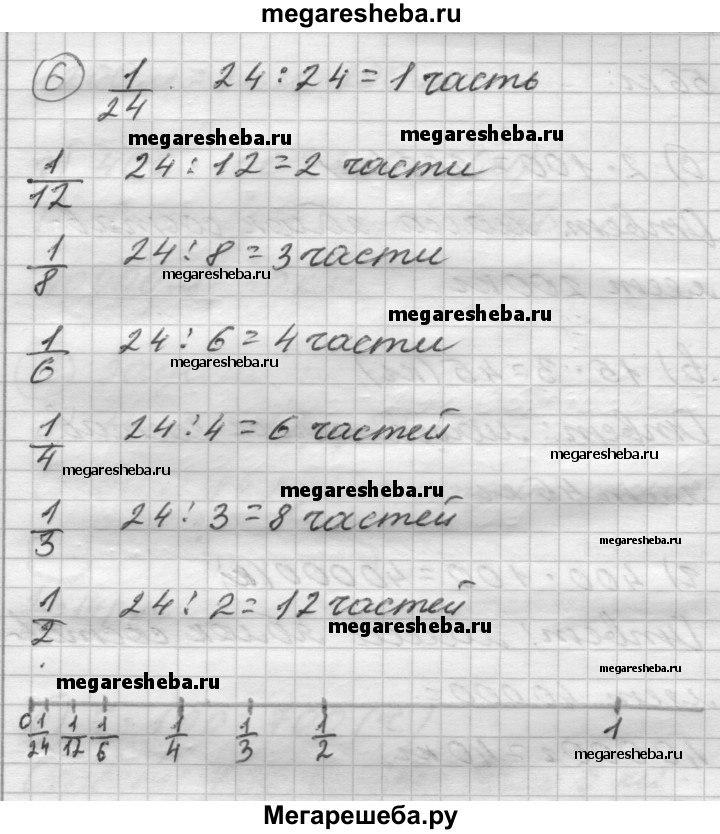 megaresheba.ru
6 1/24 . 24 : 24 = 1 часть
megaresheba.ru megaresheba.ru
1/12 24 : 12 = 2 части
1/8 24 : 8 = 3 части
megaresheba.ru
megaresheba.ru
1/6 24 : 6 = 4 части
megaresheba.ru
1/4 24 : 4 = 6 частей
megaresheba.ru megaresheba.ru
megaresheba.ru
1/3 24 : 3 = 8 частей
megaresheba.ru
1/2 24 : 2 = 12 частей
megaresheba.ru
megaresheba.ru
megaresheba.ru
0 1/24 1/12 1/6 1/4 1/3 1/2 1
megaresheba.ru
Мегарешеба.ру